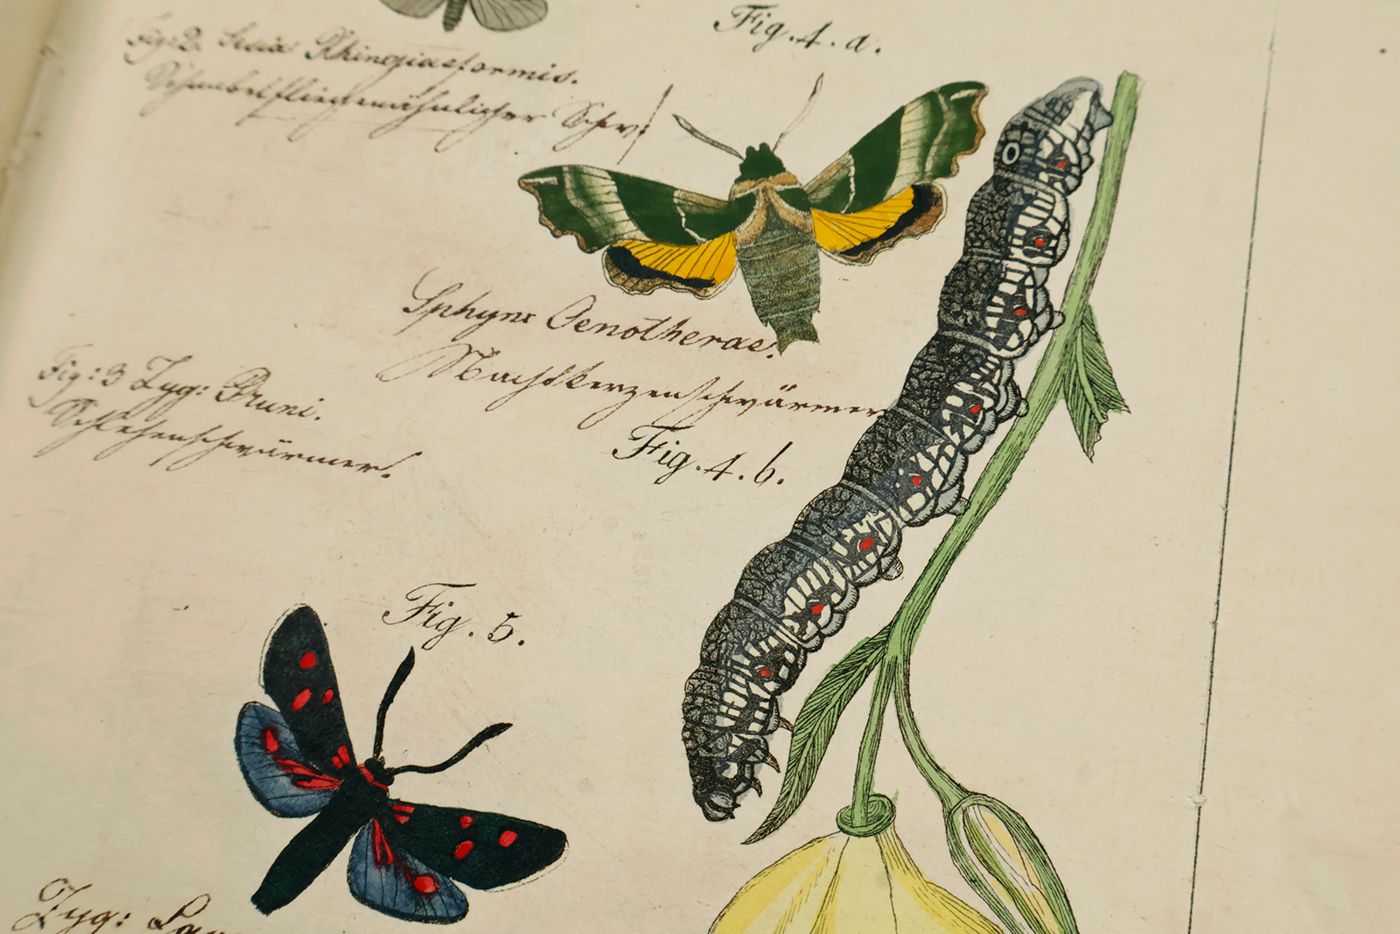 Fig. 4. a.
Fig: 2. Sesia Rhingiaeformis.
Schnabelfliegenähnlicher Schw:
Sphynx Oenotherae.
Nachtkerzenschwärmer
Fig: 3 Zyg: Pruni.
Schlehenschwärmer.
Fig. 4. b.
Fig. 5.
Zyg: